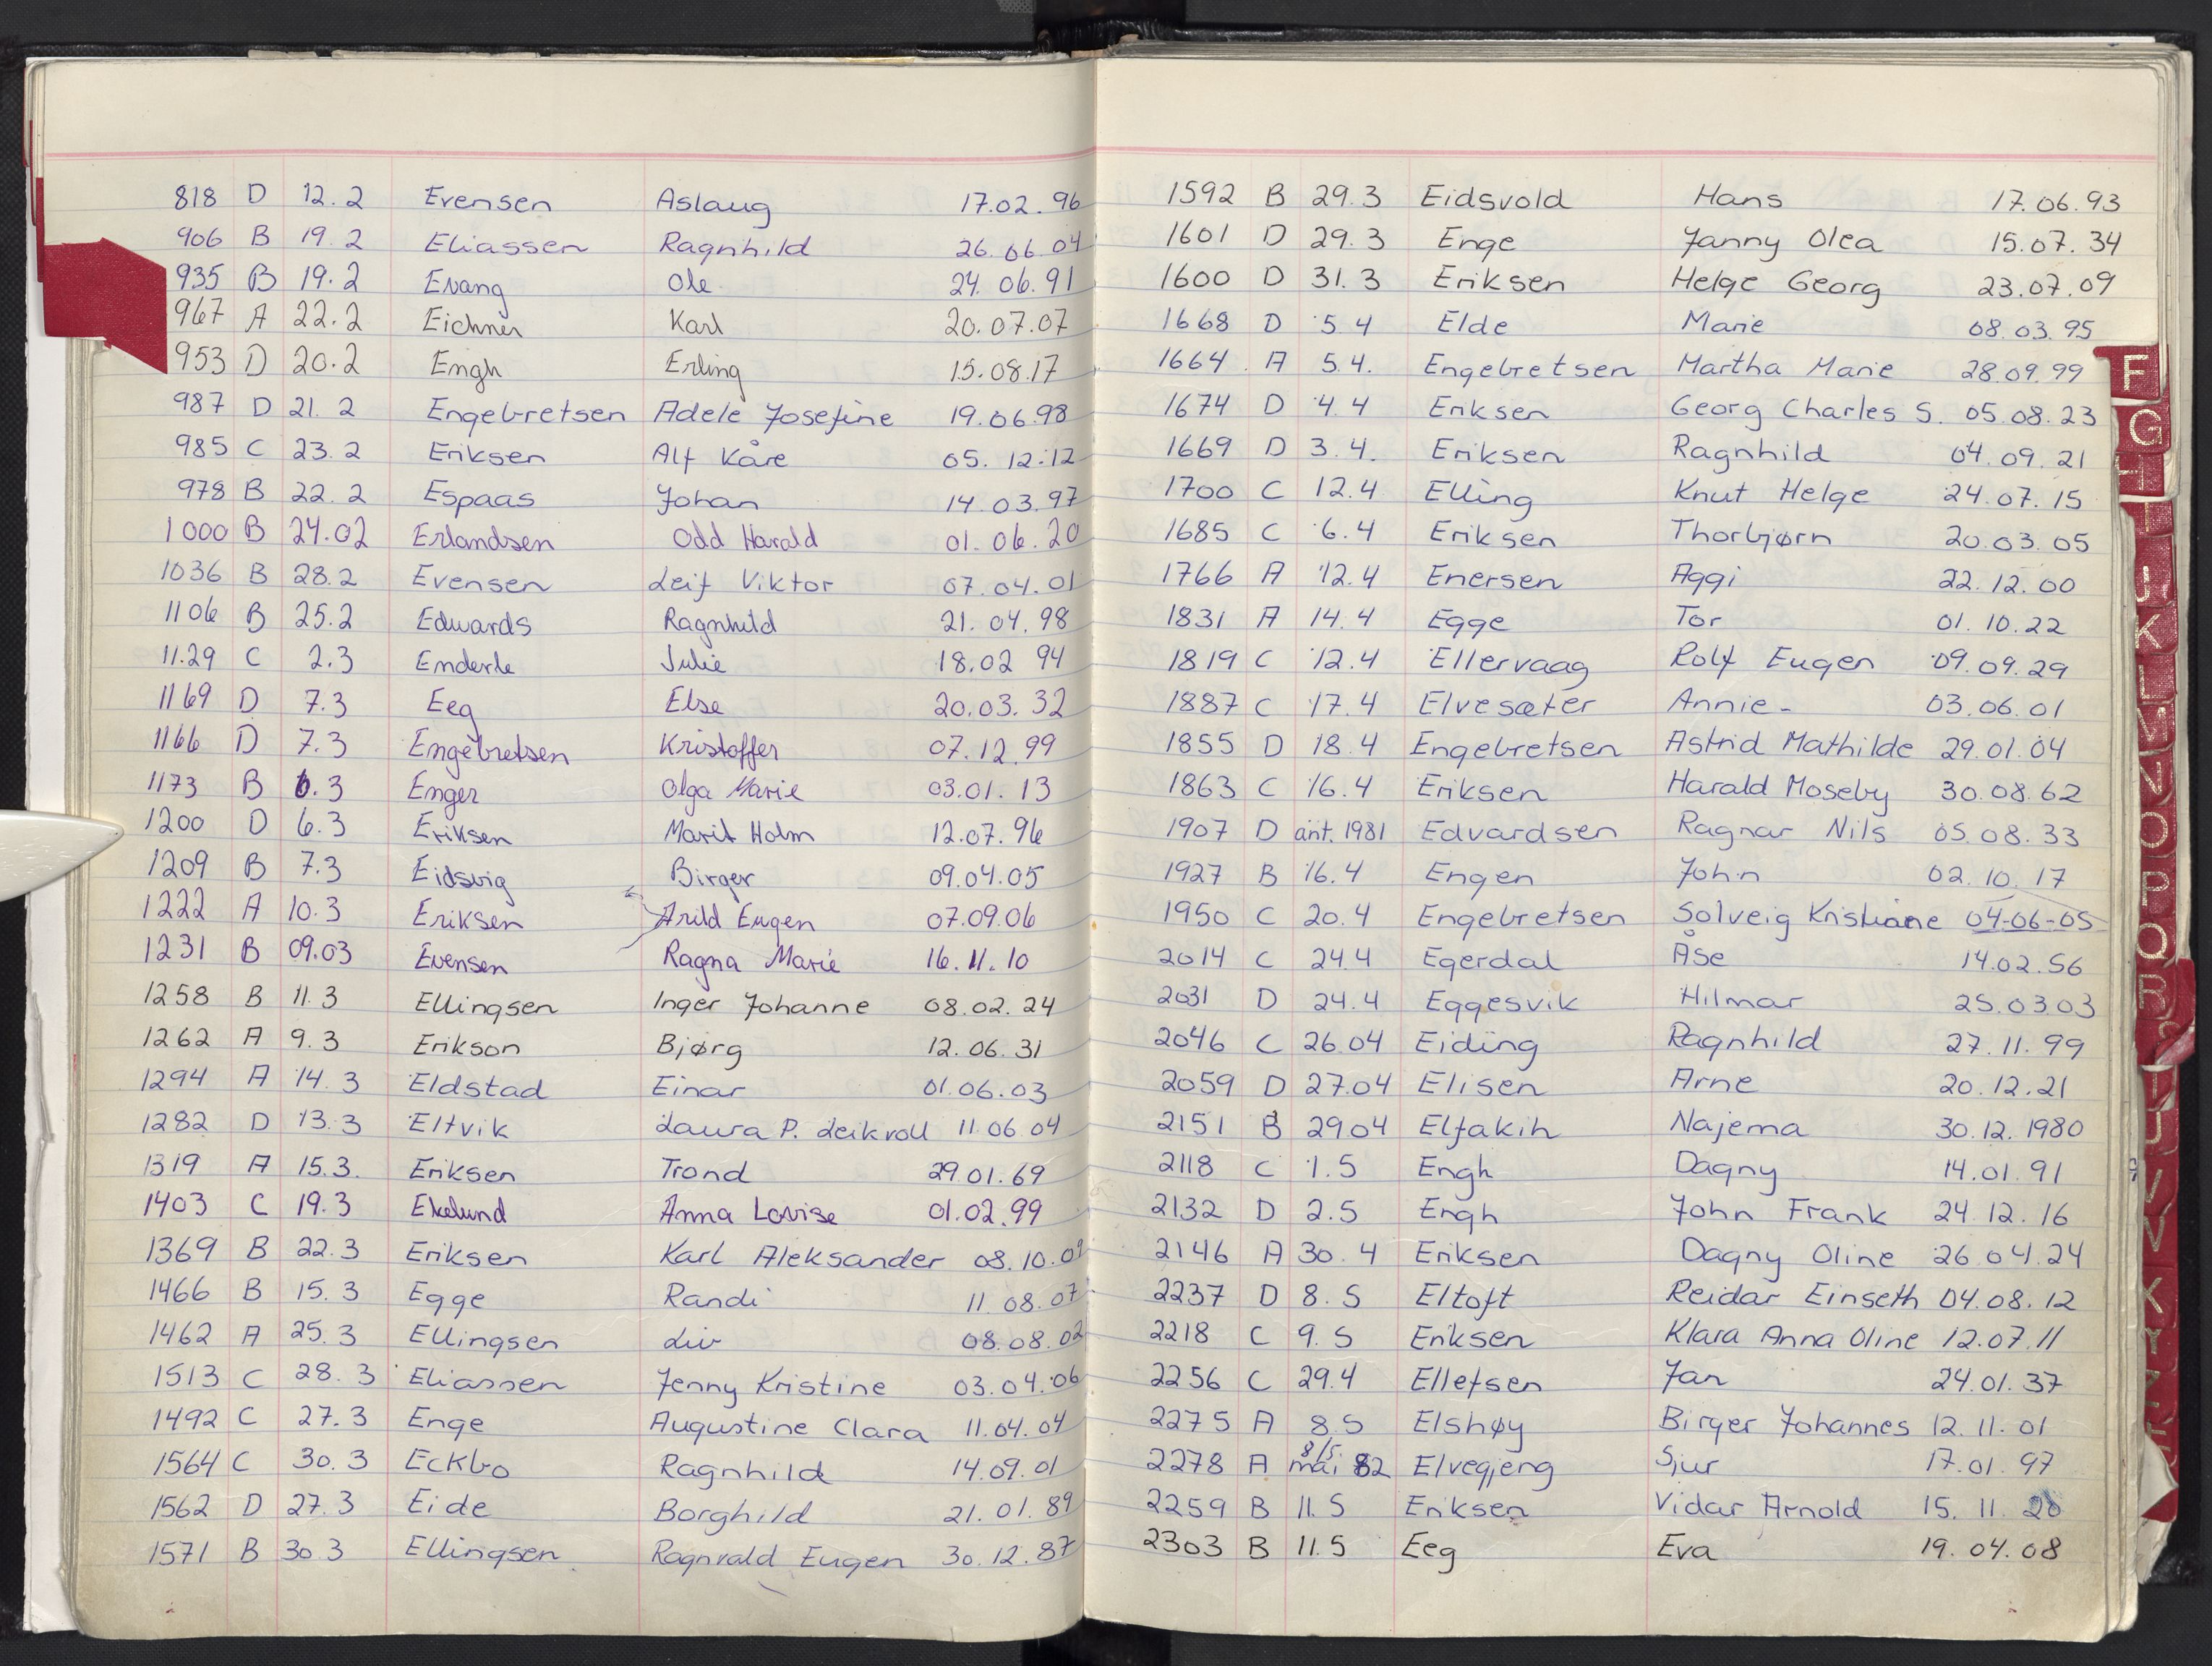 818 D 12.2 Evensen Aslaug 17.02.96
906 B 19.2 Eliassen Ragnhild 26.06.04
935 B 19.2 Evang Ole 24.06.91
967 A 22.2 Eichner Karl 20.07.07
953 D 20.2 Engh Erling 15.08.17
987 D 21.2 Engebretsen Adele Josefine 19.06.98
985 C 23.2 Eriksen Alf Kåre 05.12.12
978 B 22.2 Espaas Johan 14.03.97
1000 B 24.02 Erlandsen Odd Harald 01.06.20
1036 B 28.2 Evensen Leif Viktor 07.04.01
1106 B 25.2 Edwards Ragnhild 21.04.98
11.29 C 2.3 Enderle Julie 18.02 94
1169 D 7.3 Eeg Else 20.03.32
1166 D 7.3 Engebretsen Kristoffer 07.12.99
1173 B 6.3 Enger Olga Marie 03.01.13
1200 D 6.3 Eriksen Marit Holm 12.07.96
1209 B 7.3 Eidsvig Birger 09.04.05
1222 A 10.3 Eriksen Arild Eugen 07.09.06
1231 B 09.03 Evensen Ragna Marie 16.11.10
1258 B 11.3 Ellingsen Inger Johanne 08.02.24
1262 A 9.3 Erikson Bjørg 12.06.31
1294 A 14.3 Eldstad Einar 01.06.03
1282 D 13.3 Eltvik Laura P. Leikvoll 11.06.04
1319 A 15.3. Eriksen Trond 29.01.69
1403 C 19.3 Ekelund Anna Lovise 01.02.99
1369 B 22.3 Eriksen Karl Aleksander 08.10.09
1466 B 15.3 Egge Randi 11.08.07
1462 A 25.3 Ellingsen Liv 08.08.02
1513 C 28.3 Eliassen Jenny Kristine 03.04.06
1492 C 27.3 Enge Augustine Clara 11.04.04
1564 C 30.3 Eckbo Ragnhild 14.09.01
1562 D 27.3 Eide Borghild 21.01.89
1571 B 30.3 Ellingsen Ragnvald Eugen 30.12.87
1592 B 29.3 Eidsvold Hans 17.06.93
1601 D 29.3 Enge Janny Olea 15.07.34
1600 D 31.3 Eriksen Helge Georg 23.07.09
1668 D 5.4 Elde Marie 08.03.95
1664 A 5.4. Engebretsen Martha Marie 28.09.99
1674 D 4.4 Eriksen Georg Charles S. 05.08.23
1669 D 3.4. Eriksen Ragnhild 04.09.21
1700 C 12.4 Elling Knut Helge 24.07.15
1685 C 6.4 Eriksen Thorbjørn 20.03.05
1766 A 12.4 Enersen Aggi 22.12.00
1831 A 14.4 Egge Tor 01.10.22
1819 C 12.4 Ellervaag Rolf Eugen 09.09.29
1887 C 17.4 Elvesæter Annie - 03.06.01
1855 D 18.4 Engebretsen Astrid Mathilde 29.01.04
1863 C 16.4 Eriksen Harald Moseby 30.08.62
1907 D ant. 1981 Edvardsen Ragnar Nils 05.08.33
1927 B 16.4 Engen John 02.10.17
1950 C 20.4 Engebretsen Solveig Kristiane 04-06-05
2014 C 24.4 Egerdal Åse 14.02.56
2031 D 24.4 Eggesvik Hilmar 25.03.03
2046 C 26.04 Eiding Ragnhild 27.11.99
2059 D 27.04 Elisen Arne 20.12.21
2151 B 29.04 Elfakih Najema 30.12.1980
2118 C 1.5 Engh Dagny 14.01.91
2132 D 2.5 Engh John Frank 24.12.16
2146 A 30.4 Eriksen Dagny Oline 26.04.24
2237 D 8.5 Eltoft Reidar Einseth 04.08.12
2218 C 9.5 Eriksen Klara Anna Oline 12.07.11
2256 C 29.4 Ellefsen Jan 24.01.37
2275 A 8.5 Elshøy Birger Johannes 12.11.01
8/5.
2278 A mai 82 Elvegjeng Sjur 17.01.97
2259 B 11.5 Eriksen Vidar Arnold 15.11.20
2303 B 11.5 Eeg Eva 19.04.08
F
G
H
I
J
K
L
M
N
O
P
Q
R
U
V